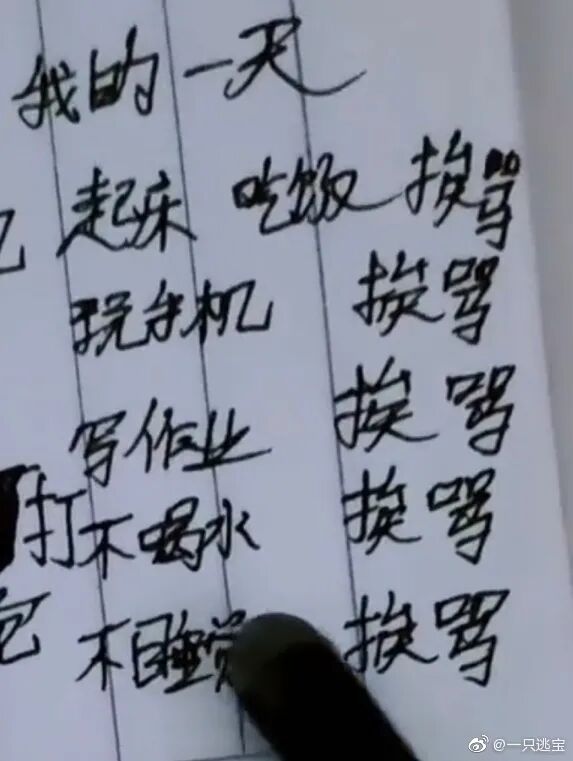 我的一天
起床 吃饭 挨骂
玩手机 挨骂
写作业 挨骂
打不喝水 挨骂
不睡觉 挨骂
@一只逃宝